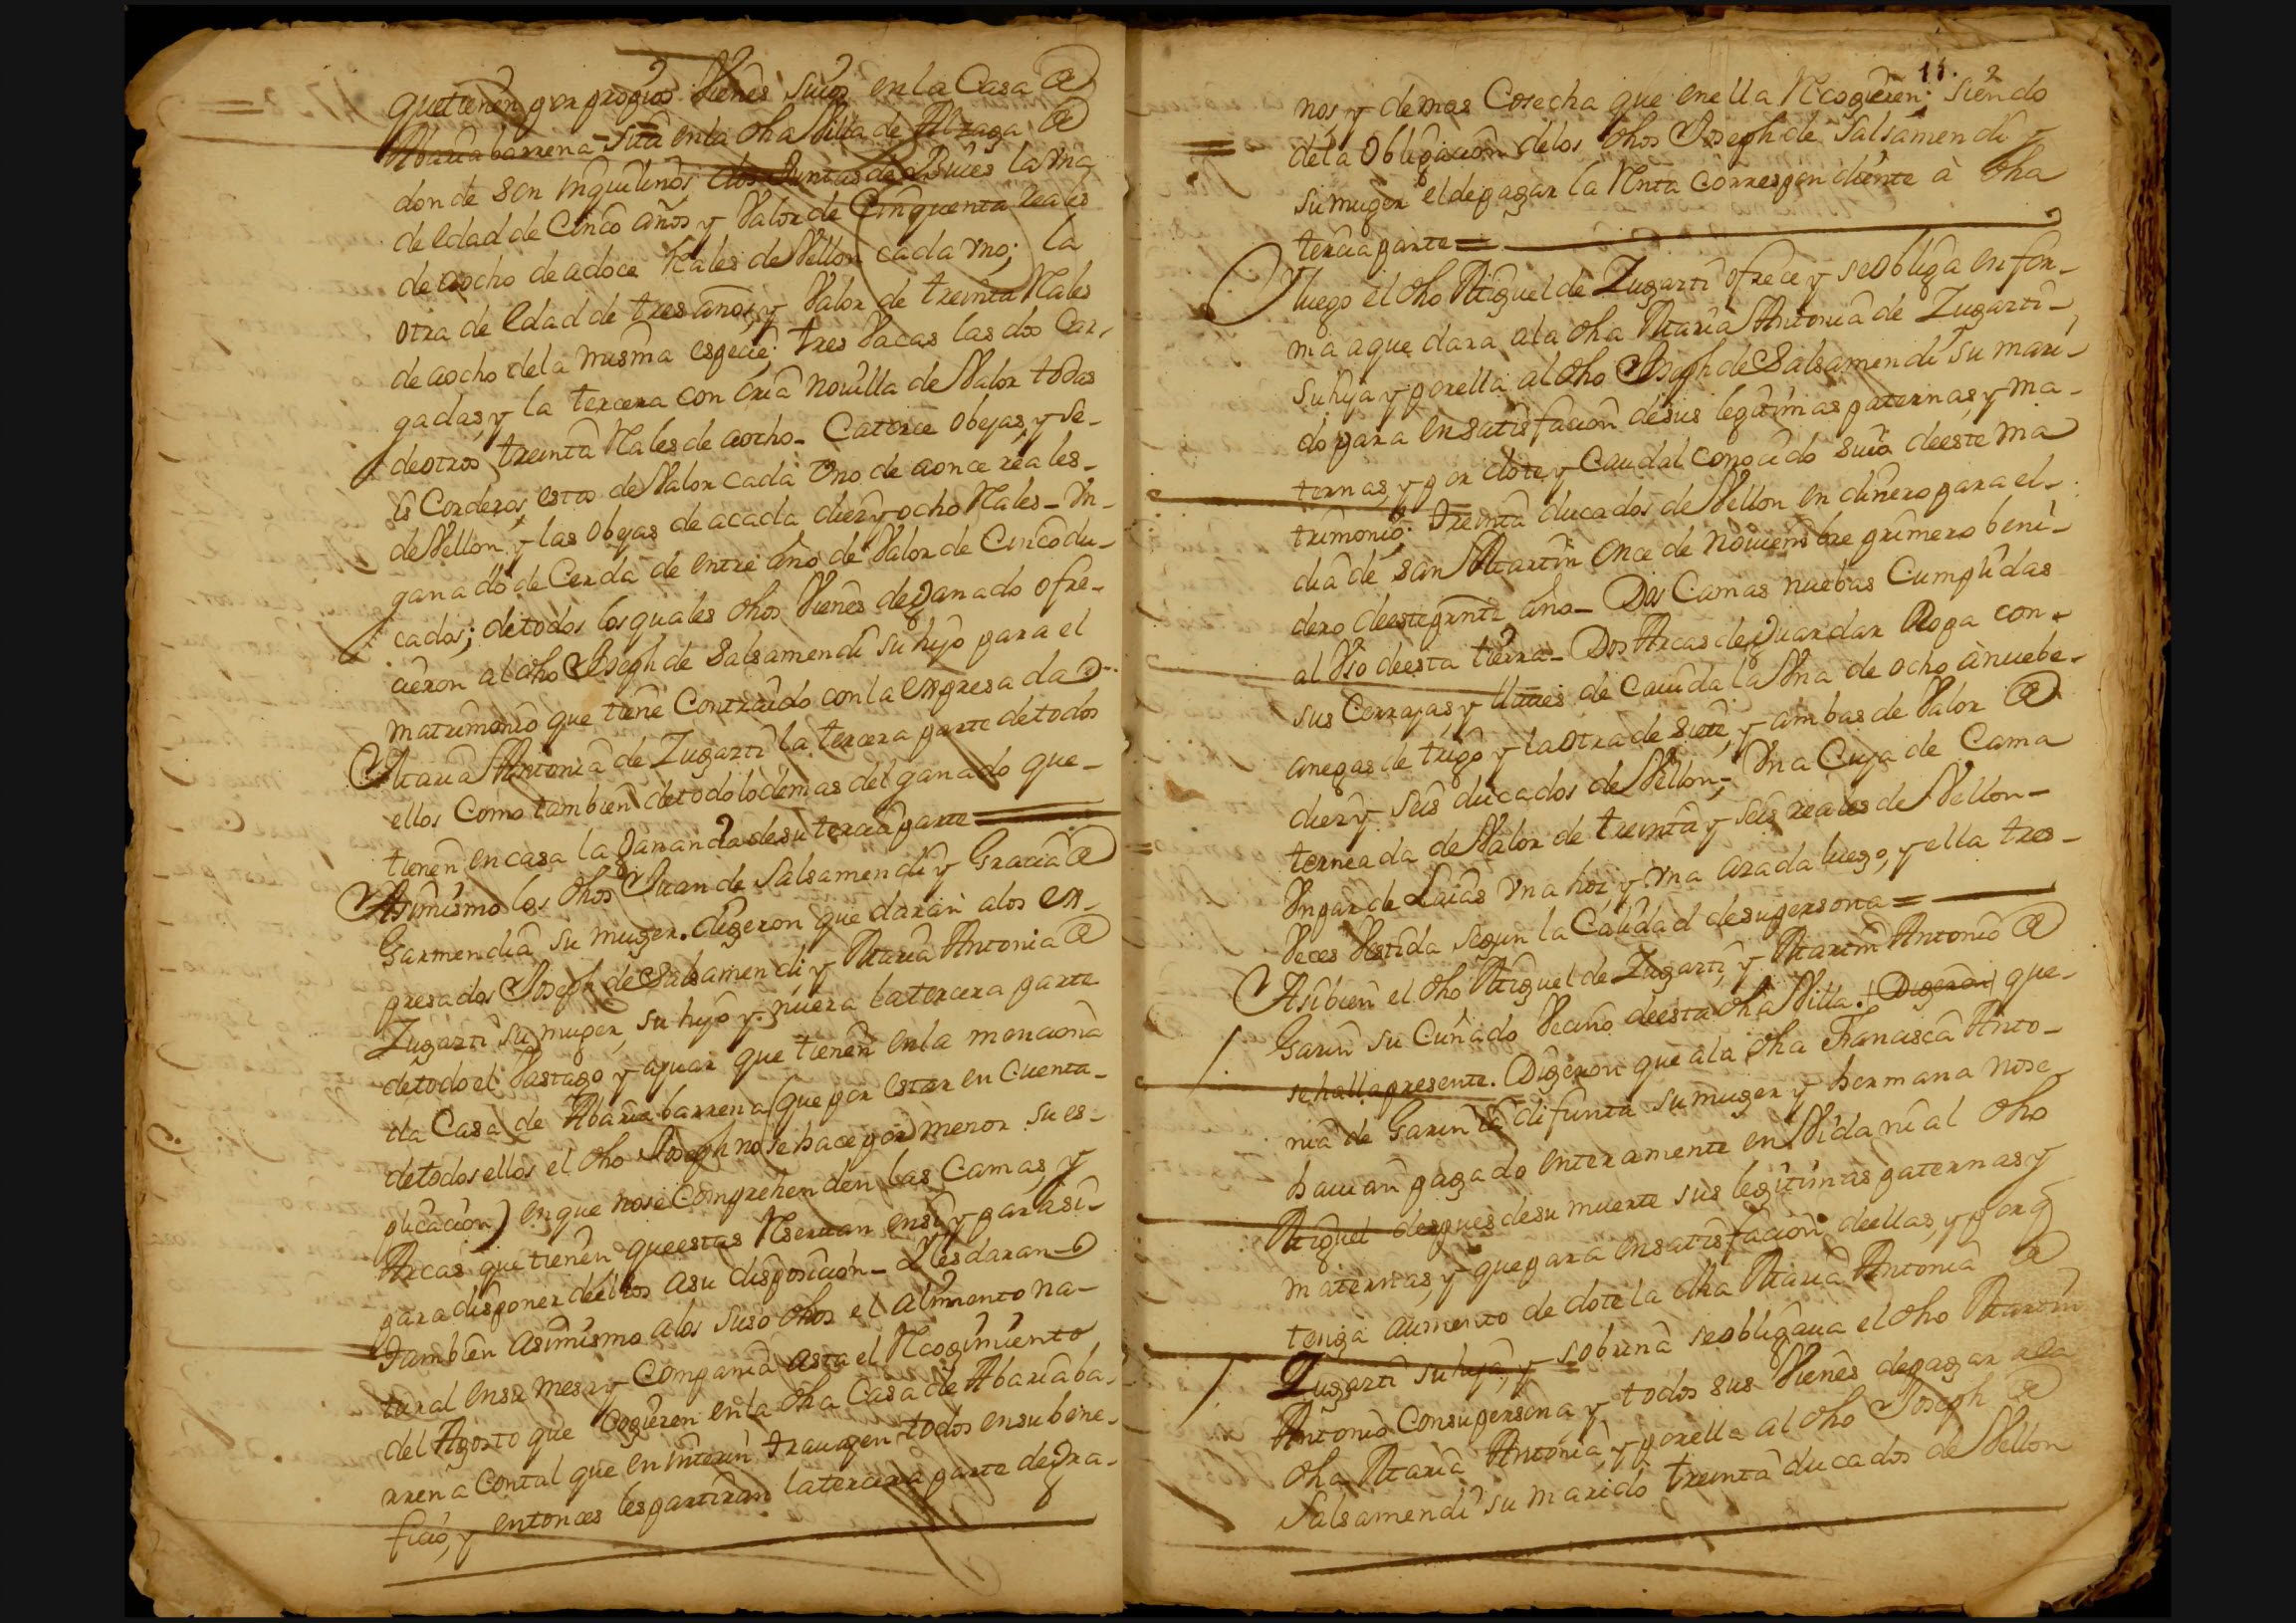 que tienen por propios Vienes suios en la Casa de
Abariabarrena sita en la dha Villa de Alzaga de
donde son inquilinos dos Juntas de Bueies la vna
de edad de Cinco años y Valor de Cinquenta reales
de aocho de adoce Rales de Vellon cada vno; la
otra de edad de tres años, y Valor de treinta Rales
de aocho de la misma especie: tres Vacas las dos Car-
gadas, y la tercera con cria novilla de Valor todas
de otros treinta Rales de aocho_ Catorce obejas, y se-
is Corderos, estos de Valor cada vno de aonce reales_
de Vellon, y las obejas de acada diez y ocho Rales_ vn_
ganado de Cerda de entre año de Valor de Cinco du_
cados; de todos los quales dhos Vienes de ganado ofre_
cieron al dho Joseph de Salsamendi su hijo para el
matrimonio que tiene Contraido con la expresada
Maria Antonia de Zugarti la tercera parte de todos
ellos Como tambien de todo lo demas del ganado que_
tienen en casa la ganancia de su tercia parte=
Asimismo los dhos Juan de Salsamendi y Gracia de
Garmendia su muger. digeron que daran alos ex_
presados Joseph de Salsamendi, y Maria Antonia de
Zugarti su muger, su hijo y nuera la tercera parte
de todo el Vastago y ajuar que tienen en la menciona
da Casa de Abariabarrena (que por estar en cuenta_
de todos ellos el dho Joseph no se hace por menor su es_
plicacion) en que no se Comprehenden las Camas, y
Arcas que tienen que estas Reservan en si, y para si_
para disponer de ellos a su disposicion_ Y les daran_
tambien asimismo a los suso dhos el alimento na_
tural en su mesa, y Compania asta el Recogimiento
del Agosto que Cogieren en la dha Casa de Abariaba_
rrena Con tal que en interin travagen todos en su bene_
ficio, y entonces les partiran la tercera parte de gra_
11.
nos, y demas Cosecha que en ella Recogieren; siendo
de la Obligacion de los dhos Joseph de Salsamendi y
su muger el de pagar la Renta correspondiente à dha
tercia parte=
Y luego el dho Miguel de Zugarti ofrece y se obliga en for_
ma a que dara a la dha Maria Antonia de Zugarti_
su hija y por ella al dho Joseph de Salsamendi su mari_
do para en satisfacion de sus legitimas paternas, y ma_
ternas, y por dote, y Caudal conocido suio de este ma
trimonio: treinta ducados de Vellon en dinero para el_
dia de san Martin once de noviembre primero beni_
dero de este presnte año_ Dos Camas nuebas Cumplidas
al Vso de esta tierra_ Dos Arcas de guardar Ropa con
sus Cerrajas, y llaves de cavida la Vna de ocho à nuebe_
anegas de trigo y la otra de siete, y ambas de Valor de
diez y seis ducados de Vellon; Vna Cuja de Cama
torneada de Valor de treinta y seis reales de Vellon_
Vn par de Laias vna hoz, y vna azada luego, y ella tres_
Veces Vestida segun la Calidad de su persona=
Asi bien el dho Miguel de Zugarti, y Martin Antonio de
Garin su Cuñado Vecino de esta dha Villa. (Digeron) que_
se halla presente. Digeron que a la dha Francisca Anto_
nia de Garin la difunta su muger y hermana no se_
havian pagado enteramente en Vida ni al dho
Miguel despues de su muerte sus legitimas paternas y
maternas, y que para en satisfacion de ellas, y porq
tenga aumento de dote la dha Maria Antonia de
Zugarti su hija, y sobrina se obligava el dho Martin
Antonio Con su persona y todos sus Vienes de pagar a la
dha Maria Antonia, y por ella al dho Joseph de
Salsamendi su marido treinta ducados de Vellon